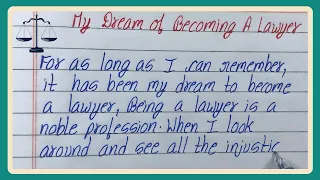 My Dream of Becoming A Lawyer
For as long as I can remember,
it has been my dream to become
a lawyer, Being a lawyer is a
noble profession. When I look
around and see all the injustic